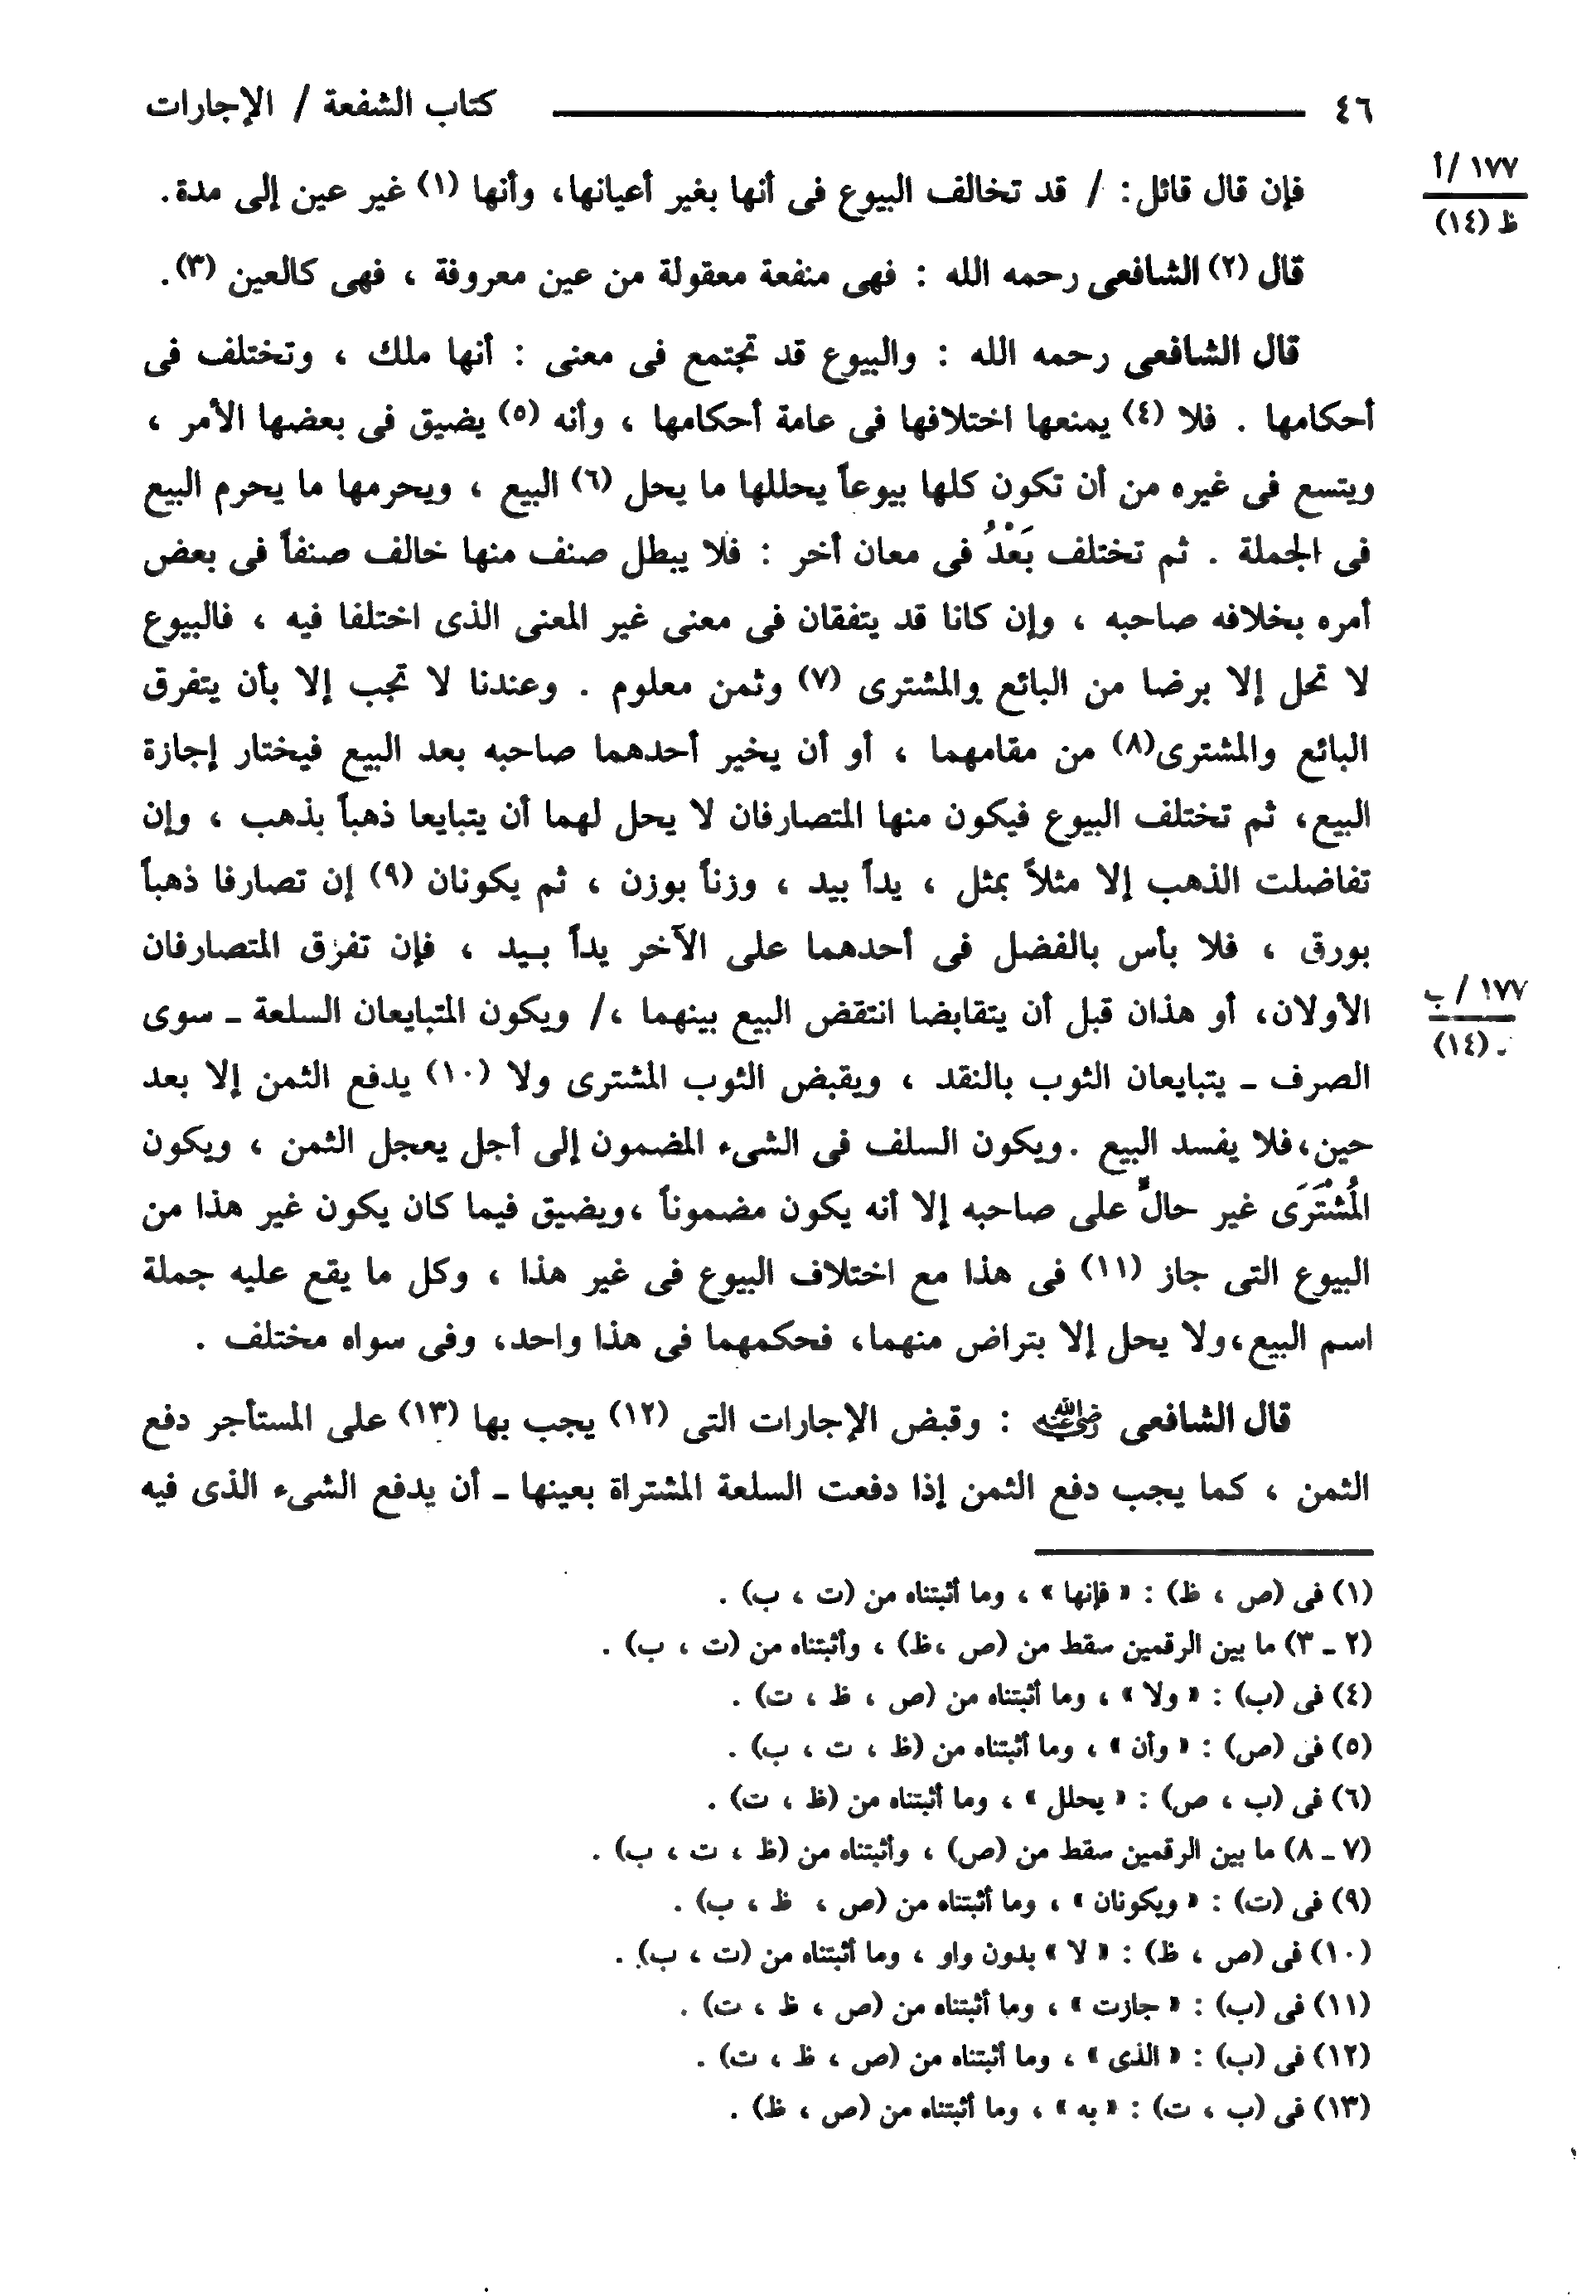 ٤٦ كتاب الشفعة / الإجارات
١٧٧ /أ
ظ (١٤)
فإن قال قائل: / قد تخالف البيوع فى أنها بغير أعيانها، وأنها (١) غير عين إلى مدة.
قال (٢) الشافعى رحمه الله : فهى منفعة معقولة من عين معروفة ، فهى كالعين (٣).
قال الشافعى رحمه الله : والبيوع قد تجتمع فى معنى : أنها ملك ، وتختلف فى
أحكامها . فلا (٤) يمنعها اختلافها فى عامة أحكامها ، وأنه (٥) يضيق فى بعضها الأمر ،
ويتسع فى غيره من أن تكون كلها بيوعاً يحللها ما يحل (٦) البيع ، ويحرمها ما يحرم البيع
فى الجملة . ثم تختلف بَعْدُ فى معان أخر : فلا يبطل صنف منها خالف صنفاً فى بعض
أمره بخلافه صاحبه ، وإن كانا قد يتفقان فى معنى غير المعنى الذى اختلفا فيه ، فالبيوع
لا تحل إلا برضا من البائع والمشترى (٧) وثمن معلوم . وعندنا لا تجب إلا بأن يتفرق
البائع والمشترى(٨) من مقامهما ، أو أن يخير أحدهما صاحبه بعد البيع فيختار إجازة
البيع، ثم تختلف البيوع فيكون منها المتصارفان لا يحل لهما أن يتبايعا ذهباً بذهب ، وإن
تفاضلت الذهب إلا مثلاً بمثل ، يداً بيد ، وزناً بوزن ، ثم يكونان (٩) إن تصارفا ذهباً
بورق ، فلا بأس بالفضل فى أحدهما على الآخر يداً بـيد ، فإن تفرق المتصارفان
الأولان، أو هذان قبل أن يتقابضا انتقض البيع بينهما ،/ ويكون المتبايعان السلعة ـ سوى
١٧٧ / ب
(١٤)
الصرف ـ يتبايعان الثوب بالنقد ، ويقبض الثوب المشترى ولا (١٠) يدفع الثمن إلا بعد
حين،فلا يفسد البيع .ويكون السلف فى الشىء المضمون إلى أجل يعجل الثمن ، ويكون
المُشْتَرَى غير حالٍّ على صاحبه إلا أنه يكون مضموناً ،ويضيق فيما كان يكون غير هذا من
البيوع التى جاز (١١) فى هذا مع اختلاف البيوع فى غير هذا ، وكل ما يقع عليه جملة
اسم البيع،ولا يحل إلا بتراض منهما، فحكمهما فى هذا واحد، وفى سواه مختلف .
قال الشافعى رضي الله عنه : وقبض الإجارات التى (١٢) يجب بها (١٣) على المستأجر دفع
الثمن ، كما يجب دفع الثمن إذا دفعت السلعة المشتراة بعينها ـ أن يدفع الشىء الذى فيه
(١) فى (ص ، ظ) : « فإنها » ، وما أثبتناه من (ت ، ب) .
(٢ ـ ٣) ما بين الرقمين سقط من (ص ،ظ) ، وأثبتناه من (ت ، ب) .
(٤) فى (ب) : « ولا » ، وما أثبتناه من (ص ، ظ ، ت) .
(٥) فى (ص) : « وأن » ، وما أثبتناه من (ظ ، ت ، ب) .
(٦) فى (ب ، ص) : « يحلل » ، وما أثبتناه من (ظ ، ت) .
(٧ ـ ٨) ما بين الرقمين سقط من (ص) ، وأثبتناه من (ظ ، ت ، ب) .
(٩) فى (ت) : « ويكونان » ، وما أثبتناه من (ص ، ظ ، ب) .
(١٠) فى (ص ، ظ) : « لا » بدون واو ، وما أثبتناه من (ت ، ب) .
(١١) فى (ب) : « جازت » ، وما أثبتناه من (ص ، ظ ، ت) .
(١٢) فى (ب) : « الذى » ، وما أثبتناه من (ص ، ظ ، ت) .
(١٣) فى (ب ، ت) : « به » ، وما أثبتناه من (ص ، ظ) .